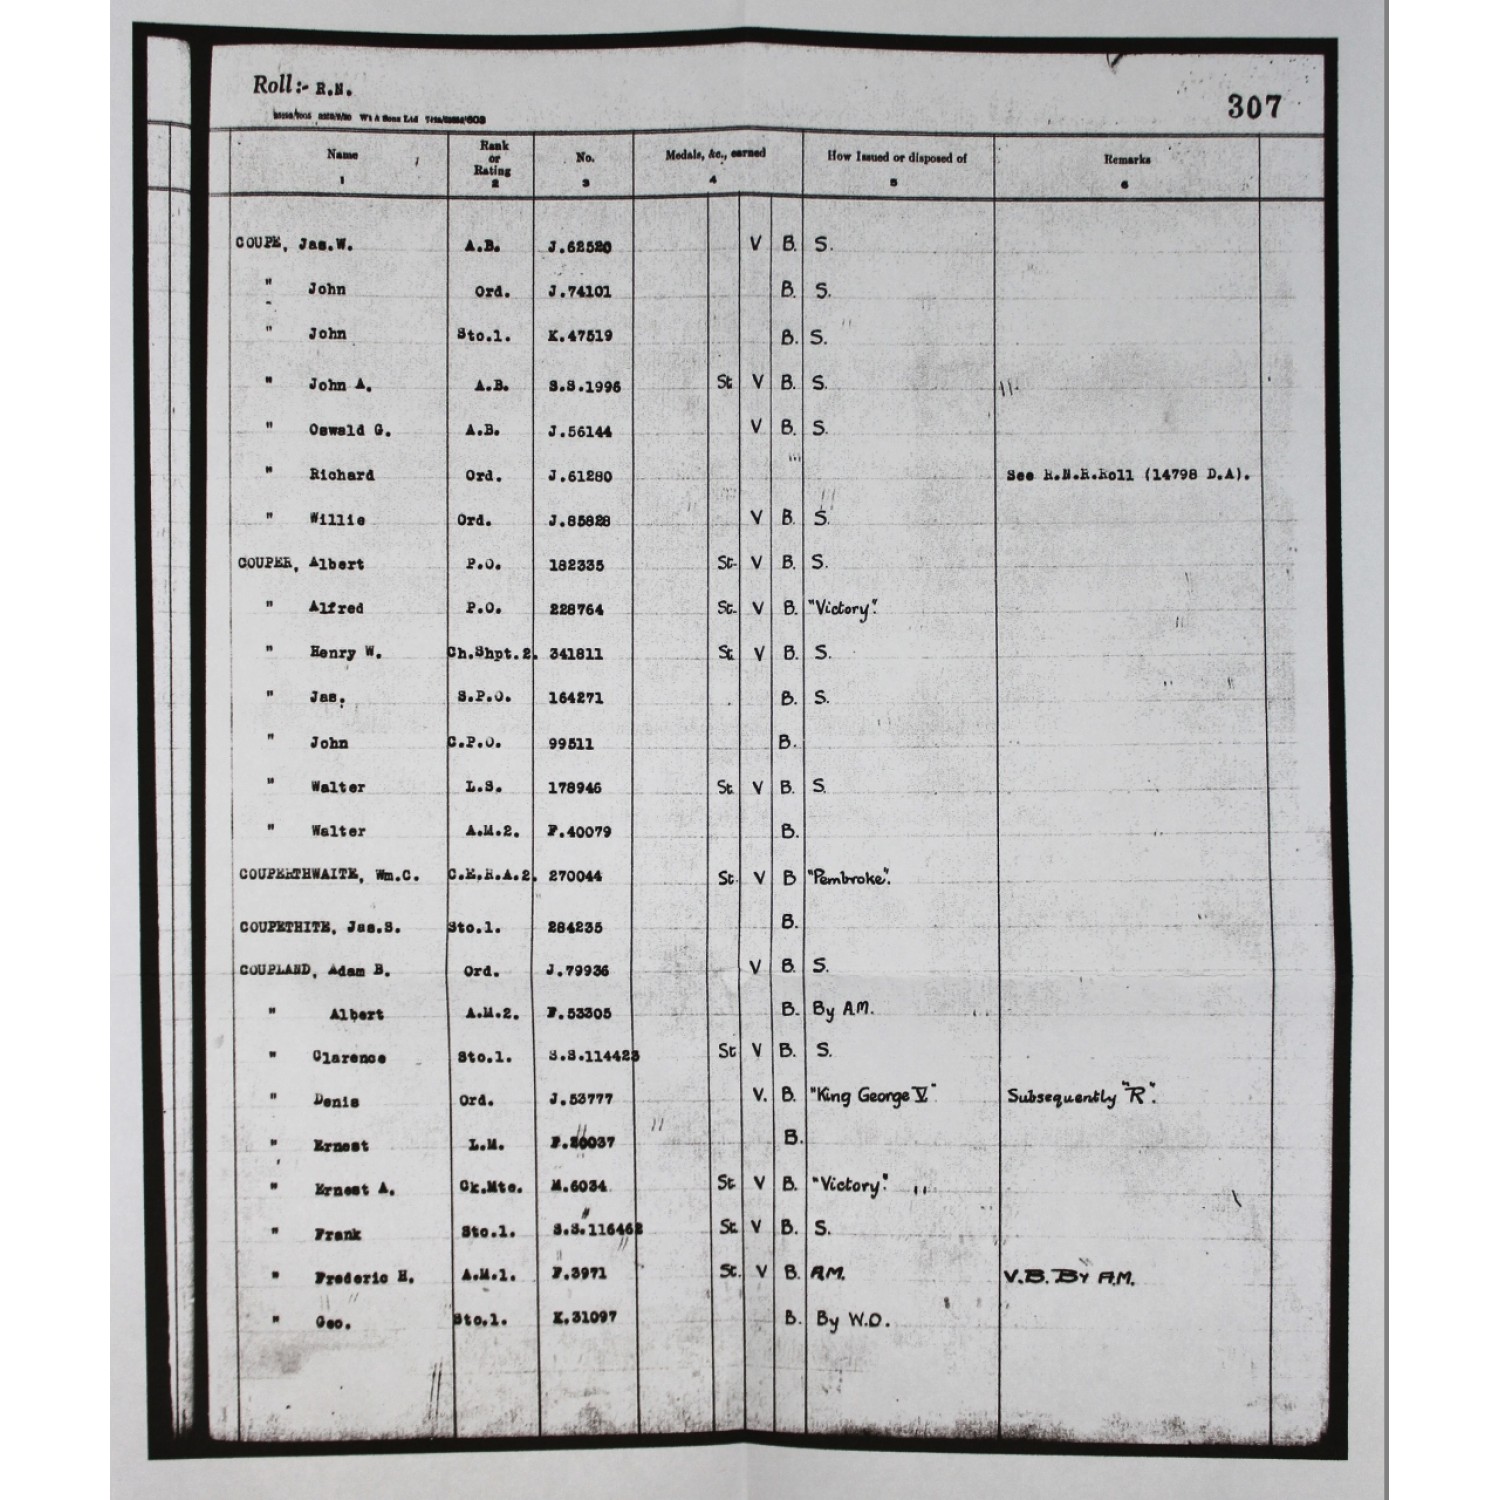 Roll:- R.N.
307
Wt & Sons Ltd
Name Rank or Rating No. Medals, &c., earned How Issued or disposed of Remarks
1 2 3 4 5 6
COUPE, Jas.W. A.B. J.62520 V B. S.
" John Ord. J.74101 B. S.
" John Sto.1. K.47519 B. S.
" John A. A.B. S.S.1996 St V B. S.
" Oswald G. A.B. J.56144 V B. S.
" Richard Ord. J.61280 See R.N.R.Roll (14798 D.A).
" Willie Ord. J.85828 V B. S.
COUPER, Albert P.O. 182335 St. V B. S.
" Alfred P.O. 228764 St. V B. "Victory".
" Henry W. Ch.Shpt.2. 341811 St. V B. S.
" Jas. S.P.O. 164271 B. S.
" John C.P.O. 99511 B.
" Walter L.S. 178946 St. V B. S.
" Walter A.M.2. F.40079 B.
COUPERTHWAITE, Wm.C. C.E.R.A.2. 270044 St. V B "Pembroke".
COUPETHITE, Jas.S. Sto.1. 284235 B.
COUPLAND, Adam B. Ord. J.79936 V B. S.
" Albert A.M.2. F.53305 B. By A.M.
" Clarence Sto.1. S.S.114423 St V B. S.
" Denis Ord. J.53777 V. B. "King George V." Subsequently "R".
" Ernest L.M. F.20037 B.
" Ernest A. Ck.Mte. M.6034 St V B. "Victory".
" Frank Sto.1. S.S.116462 St. V B. S.
" Frederic H. A.M.1. F.3971 St. V B. A.M. V.B. By A.M.
" Geo. Sto.1. K.31097 B. By W.O.